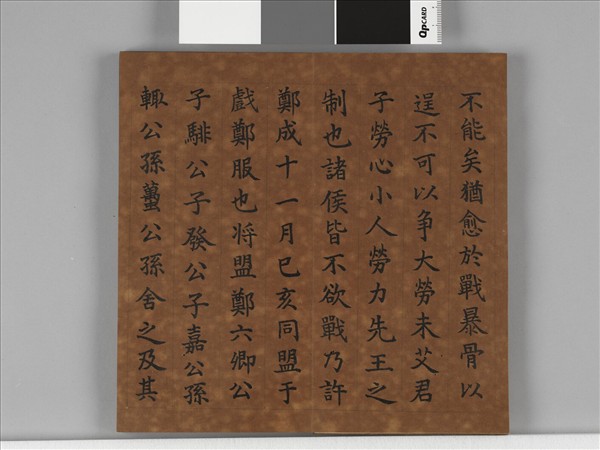 不能矣猶愈於戰暴骨以
逞不可以争大勞未艾君
子勞心小人勞力先王之
制也諸侯皆不欲戰乃許
鄭成十一月己亥同盟于
戲鄭服也将盟鄭六卿公
子騑公子發公子嘉公孫
輙公孫蠆公孫舍之及其
QPCARD